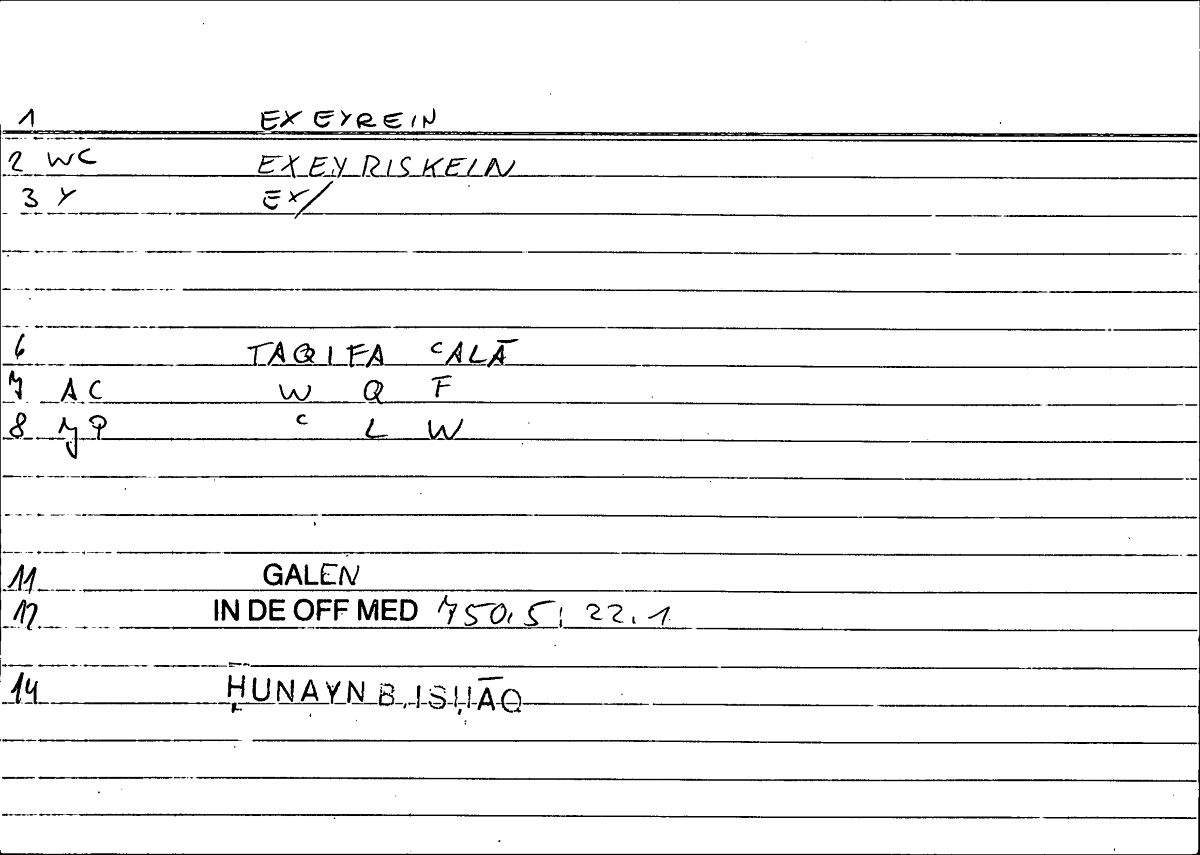 1 EXEYREIN
2 WC EXEYRISKEIN
3 Y EX/
6 TAQIFA ᶜALĀ
7 AC W Q F
8 7P ᶜ L W
11 GALEN
12 IN DE OFF MED 750,5; 22,1
14 ḤUNAYN B. ISḤĀQ